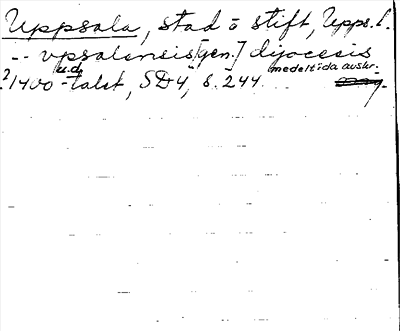 Uppsala, stad o stift, Upps. l.
-- vpsalensis [gen.] dyocesis
u.d.
medeltida avskr.
1400-talet, SD 4, s. 244